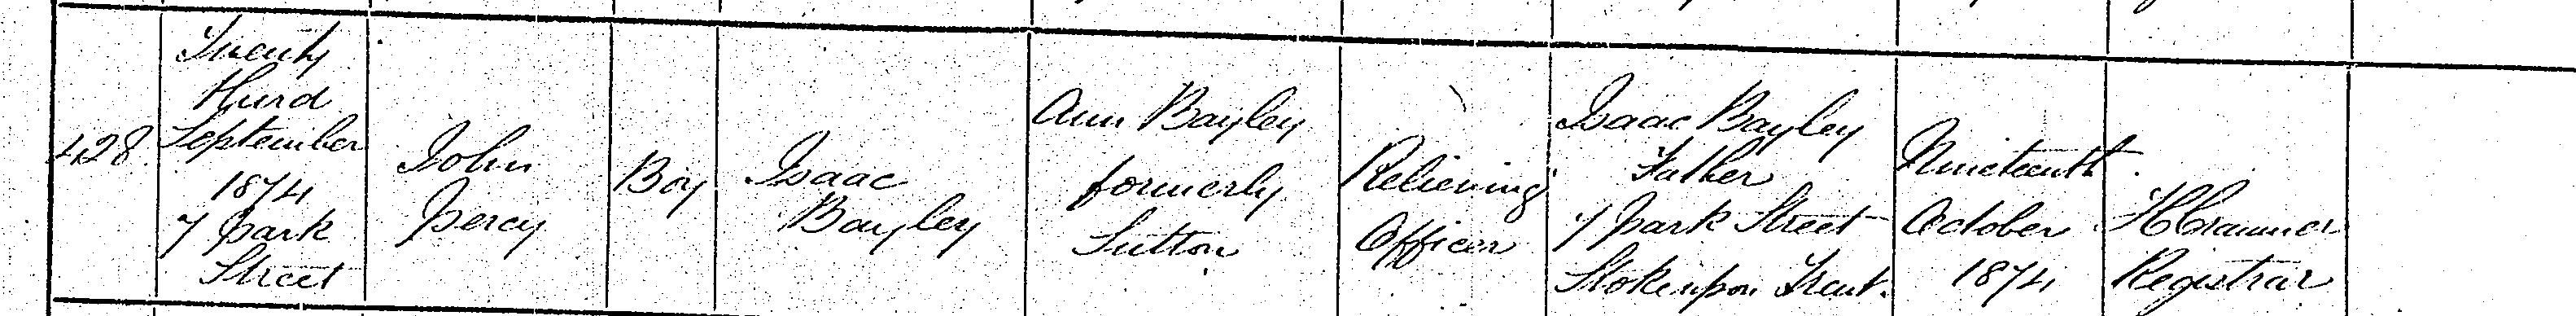 428
Twenty
third
September
1874
7 Park
Street
John
Percy
Boy
Isaac
Bayley
Ann Bayley
formerly
Sutton
Relieving
Officer
Isaac Bayley
Father
7 Park Street
Stoke upon Trent.
Nineteenth
October
1874
Registrar